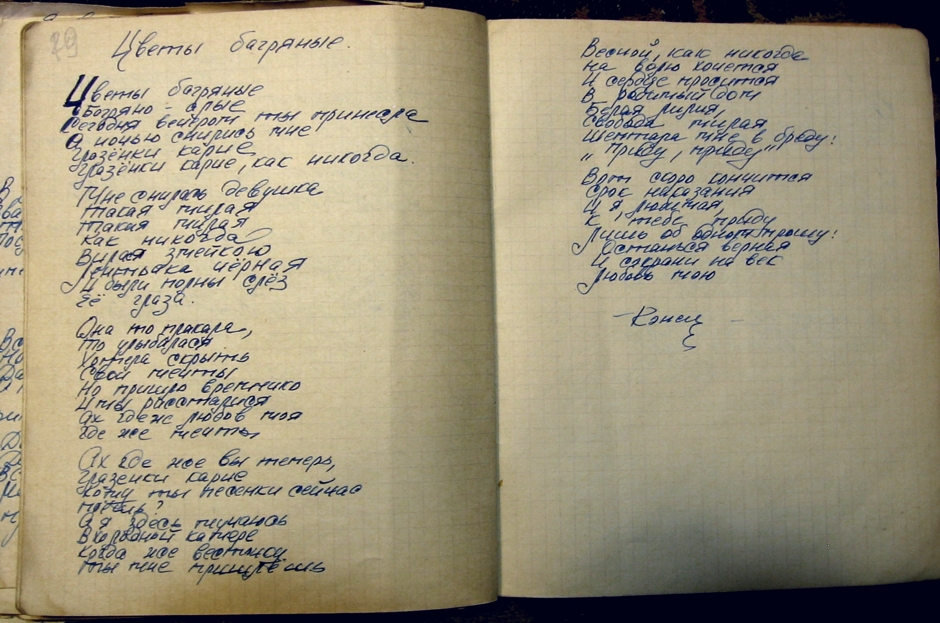 79
Цветы багряные.
Цветы багряные
Багряно - алые
Сегодня вечером ты принесла
А ночью снились мне
Глазёнки карие
Глазёнки карие, как никогда.
Мне снилась девушка
Такая милая
Такая милая
Как никогда
Вилая змейкою
Ленточка чёрная
И были полны слёз
Её глаза.
Она то плакала,
То улыбалася
Хотела скрыть
Свои мечты
Но пришло времячко
И мы рассталися
Ах где же любов моя
Где же мечты
Ах где же вы теперь,
Глазенки карие
Кому ты песенки сейчас
поешь?
А я здесь мучаюсь
В холодной камере
Когда же весточку
Ты мне пришлёшь
Весной, как никогда
На волю хочется
И сердце просится
В родимый дом
Белая лилия,
Свобода милая
Шептала мне в бреду:
„Приду, приду"
Вот скоро кончится
Срок наказания
И я любимая
К тебе приду
Лишь об одном прошу:
Останься верная
И сохрани на век
Любовь мою
- Конец -